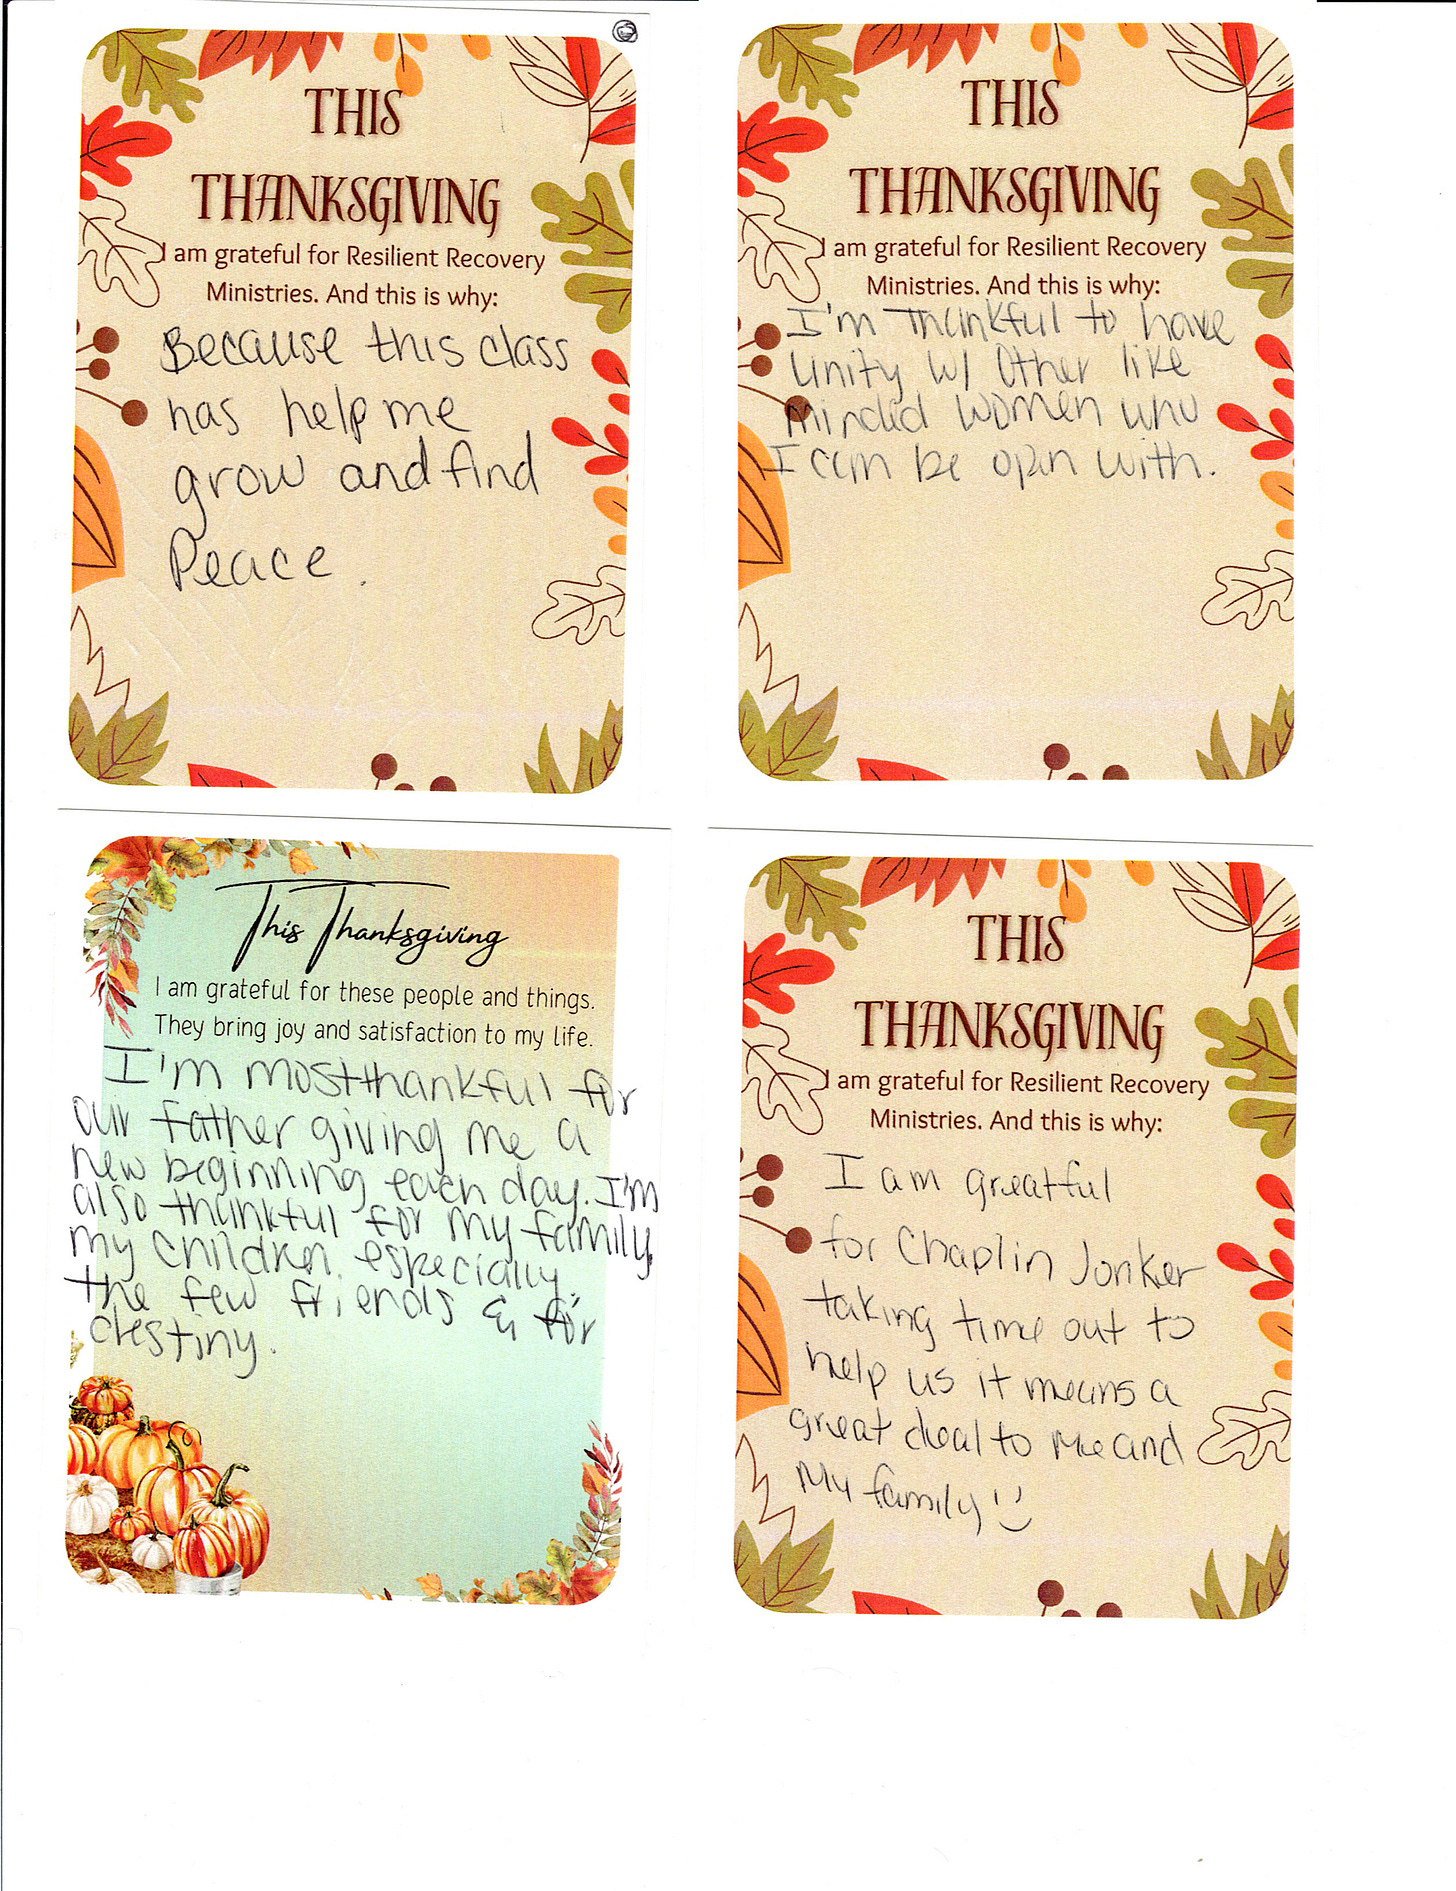 THIS
THANKSGIVING
I am grateful for Resilient Recovery
Ministries. And this is why:
Because this class
has help me
grow and find
Peace.
THIS
THANKSGIVING
I am grateful for Resilient Recovery
Ministries. And this is why:
I'm thankful to have
Unity w/ Other like
minded women who
I can be open with.
This Thanksgiving
I am grateful for these people and things.
They bring joy and satisfaction to my life.
I'm most thankful for
our father giving me a
new beginning each day. I'm
also thankful for my family,
my children, especially
the few friends & for
destiny.
THIS
THANKSGIVING
I am grateful for Resilient Recovery
Ministries. And this is why:
I am greatful
for Chaplin Jonker
taking time out to
help us it means a
great deal to me and
My family!